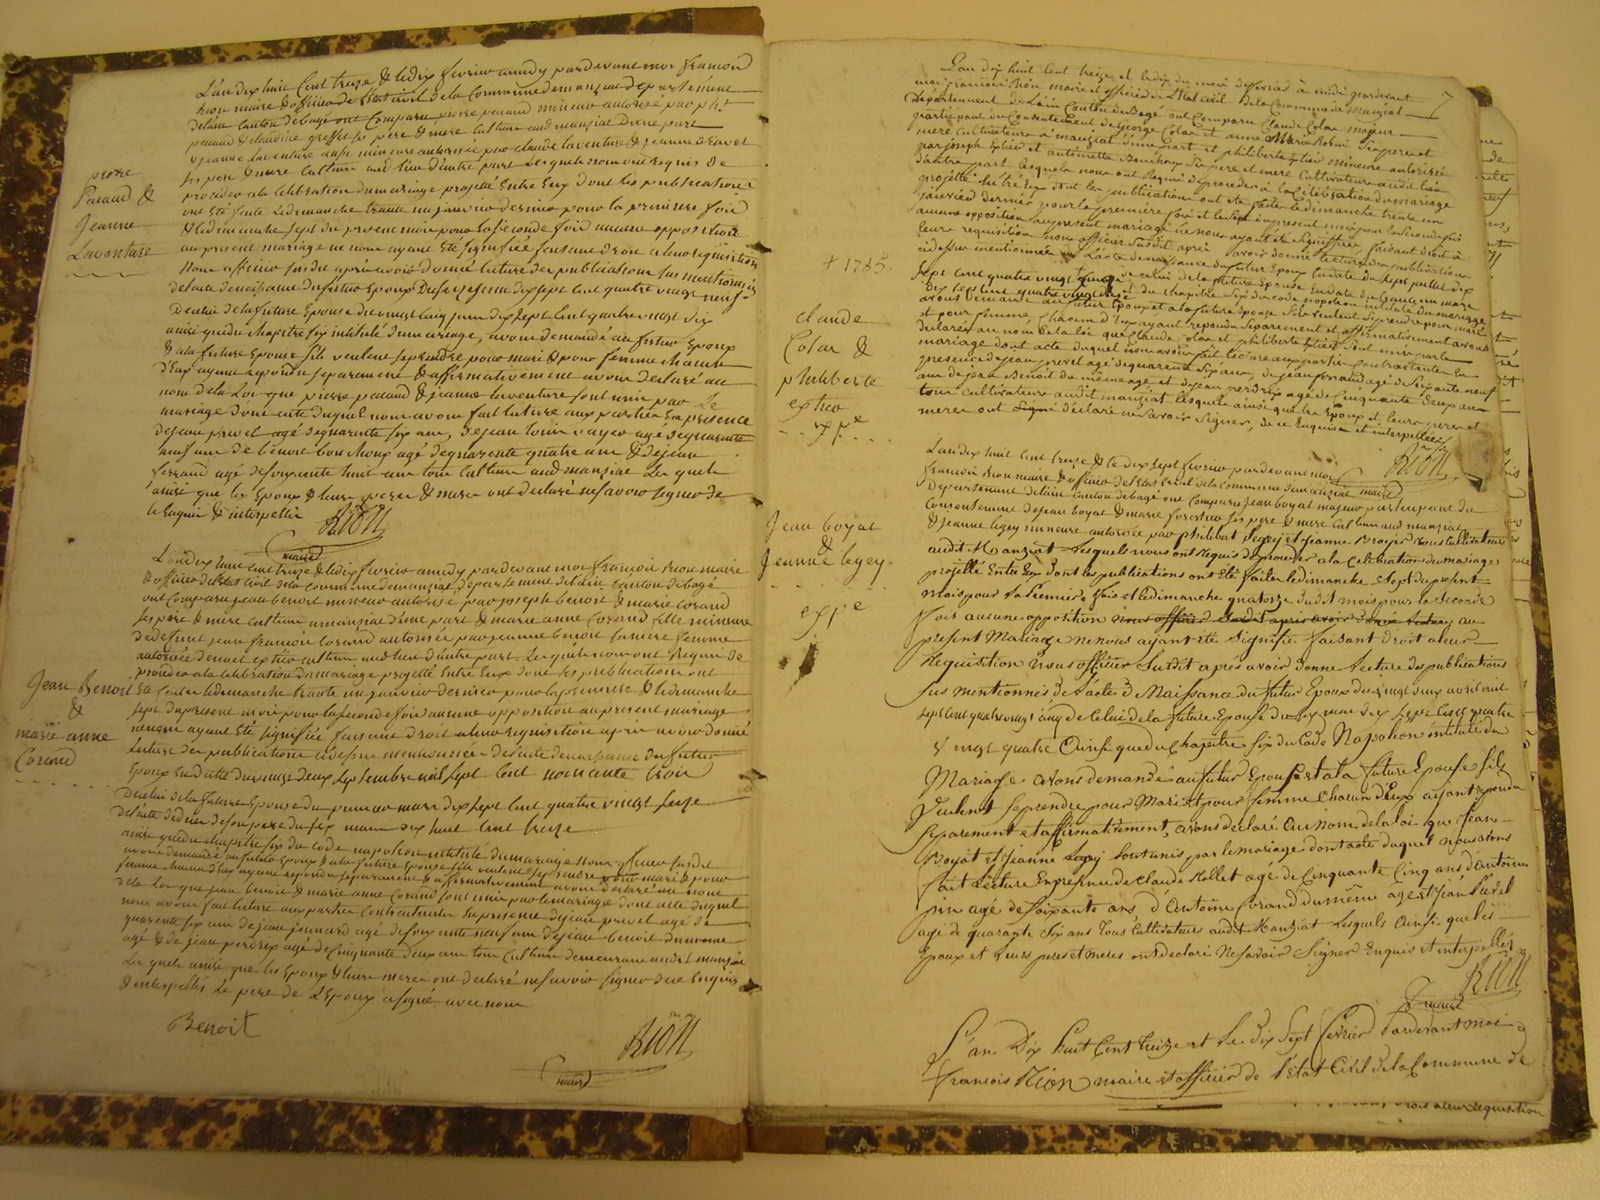 pierre
Pacaud &
Jeanne
Laventure
L'an dix huit Cent treize & le dix fevrier a midy pardevant moi françois
Rion maire & officier de l'Etat civil de la Commune de manziat departement
de l'ain Canton de bagé ont Comparu pierre pacaud mineur autorisé par
pacaud & claudine ses pere & mere Cultivateurs aud manziat d'une part
& jeanne laventure aussi mineure autorisée par claude laventure & jeanne
ses pere & mere Cultivateurs aud lieu d'autre part Lesquels nous ont requis de
proceder a la Celebration du mariage projetté Entre Eux dont les publications
ont Eté faites Le dimanche trente un janvier dernier pour la premiere fois
& le dimanche sept du present mois pour la seconde fois aucune opposition
au present mariage ne nous ayant Eté signifiée faisant droit a leur requisition
Nous officier susdit après avoir donné lecture des publications sus mentionnées
de l'acte de naissance du futur Epoux du seize dix sept Cent quatre vingt neuf
De celui de la future Epouse du vingt cinq juin dix sept Cent quatre vingt dix
ainsi que du chapitre six intitulé du mariage, avons demandé au futur Epoux
& a la future Epouse s'ils veulent se prendre pour mari & pour femme chacun
D'Eux ayant repondu separement & affirmativement avons declaré au
nom de la Loi que pierre pacaud & jeanne laventure sont unis par le
mariage dont acte duquel nous avons fait lecture aux parties En presence
de jean prevel agé de quarante six ans, de jean agé de quarante
ans de benoit bouchoux agé de quarante quatre ans & de jean
ferrand agé de soixante huit ans tous Cultivateurs aud manziat Les quels
ainsi que les Epoux & leurs peres & meres ont declaré ne savoir signer de
ce Enquis & interpellés Rion
maire
Jean Benoit
&
marie anne
Corand
L'an dix huit cent treize & le dix fevrier a midy pardevant moi françois Rion maire
& officier de l'Etat civil de la Commune de manziat departement de l'ain Canton de bagé
ont Comparu jean benoit mineur autorisé par joseph benoit & marie Corand
ses pere & mere Cultivateurs a manziat d'une part & marie anne Corand fille mineure
de defunt jean françois Corand autorisée par jeanne benoit sa mere femme
proceder a la Celebration du mariage projetté Entre Eux dont les publications ont
Eté faites le dimanche trente un janvier dernier pour la premiere & le dimanche
sept du present mois pour la seconde fois aucune opposition au present mariage
ne nous ayant Eté signifiée faisant droit a leur requisition après avoir donné
lecture des publications cidessus mentionnées de l'acte de naissance du futur
Epoux En datte du vingt deux septembre mil sept Cent nonante trois
De celui de la future Epouse du premier mars dix sept Cent quatre vingt seize
de l'acte de décès de son pere du six mars dix huit Cent treize
ainsi que du chapitre six du Code napoleon intitulé du mariage Nous officier susdit
avons demandé au futur Epoux & a la future Epouse s'ils veulent se prendre pour mari & pour
femme chacun d'Eux ayant repondu separement & affirmativement avons declaré au nom
de la Loi que jean benoit & marie anne Corand sont unis par le mariage dont acte duquel
nous avons fait lecture aux parties Contractantes En presence de jean prevel agé de
quarante six ans de jean agé de soixante neuf ans de jean benoit du meme
age & de jean perdrix agé de Cinquante deux ans tous Cultivateurs demeurans aud manziat
Les quels ainsi que les Epoux & leurs meres ont declaré ne savoir signer de ce Enquis
& interpellés Le pere de L'Epoux a signé avec nous
Benoit
Rion
maire
7
+ 1785.
claude
Colas &
philiberte
expée
L'an dix huit Cent treize et le dix du mois de fevrier à midi pardevant
moi françois Rion maire et officier de l'Etat civil de la Commune de Manziat
Departement de l'ain Canton de Bagé ont Comparu Claude Colas majeur
participant du Consentement de George Colas et anne Marie ses pere et
mere Cultivateurs à manziat d'une part et philiberte mineure autorisée
par joseph et antoinette Bouchoux ses pere et mere Cultivateurs audit lieu
d'autre part Lesquels nous ont Requis de proceder à la Celebration du mariage
projetté Entre Eux dont les publications ont Eté faites le dimanche trente un
janvier dernier pour la premiere fois et le sept du present mois pour la seconde fois
aucune opposition au present mariage ne nous ayant Eté signifiée, faisant droit à
leur requisition nous officier susdit après avoir donné lecture des publications
cidessus mentionnées de l'acte de naissance du futur Epoux En date du sept juillet dix
sept cent quatre vingt cinq de celui de la future Epouse En date du mars
dix sept cent quatre vingt et du chapitre six du code napoleon intitulé du mariage
avons demandé au futur Epoux et a la future Epouse s'ils veulent se prendre pour mari
et pour femme, chacun d'Eux ayant repondu separement et affirmativement avons
declaré au nom de la loi que Claude Colas et philiberte sont unis par le
mariage dont acte duquel nous avons fait lecture aux parties Contractantes En
presence de jean prevel agé de quarante six ans, de jean ferrand agé de soixante neuf
ans de jean Benoit du même age et de jean perdrix agé de cinquante deux ans
tous cultivateurs audit manziat lesquels ainsi que les Epoux et leurs peres et
meres ont declaré ne savoir signer, de ce Enquis et interpellés
Rion
maire
Jean boyat
&
Jeanne legey.
expée
L'an dix huit Cent treize & le dix sept fevrier pardevant moi
françois Rion maire & officier de l'Etat Civil de la Commune de manziat
Departement de l'ain Canton de bagé ont Comparu Jean boyat majeur participant du
Consentement de jean boyat & marie ses pere & mere Cultivateurs aud manziat
& jeanne legey mineure autorisée par philibert legey et jeanne Broyer tous Cultivateurs
audit Manziat Lesquels nous ont Requis de proceder a la Celebration du mariage
projetté Entre Eux dont les publications ont Eté faites le dimanche Sept du present
mois pour la Premiere fois et le dimanche quatorze dudit mois pour la Seconde
fois aucune opposition nous officier Susdit apres avoir au
present Mariage ne nous ayant Eté Signifiée faisant droit a leur
Requisition Nous officier Susdit apres avoir donné Lecture des publications
Sus mentionnés de l'acte de Naissance du futur Epoux du vingt deux avril mil
sept Cent quatre vingt cinq de Celui de la future Epouse du six mai dix sept Cent quatre
vingt quatre Ainsi que du Chapitre Six du Code Napoléon intitulé du
Mariage avons demandé au futur Epoux et a la future Epouse s'ils
Veulent Se prendre pour Mari et pour femme Chacun d'Eux ayant repondu
Separement et affirmativement, avons declaré Au nom de la loi que jean
Boyat et Jeanne Legey Sont unis par le mariage dont acte duquel nous avons
fait Lecture En presence de Claude Mollet agé de Cinquante Cinq ans d'antoine
agé de Soixante ans d'Antoine Corand du même age et Jean Prevel
agé de quarante Six ans tous Cultivateurs audit Manziat Lesquels Ainsi que les
Epoux et Leurs peres et meres ont declaré Ne Savoir Signer Enquis et interpellés
Rion
maire
L'an Dix huit Cent treize et Le Dix Sept fevrier Pardevant moi
françois Rion maire et officier de l'Etat Civil de la Commune de